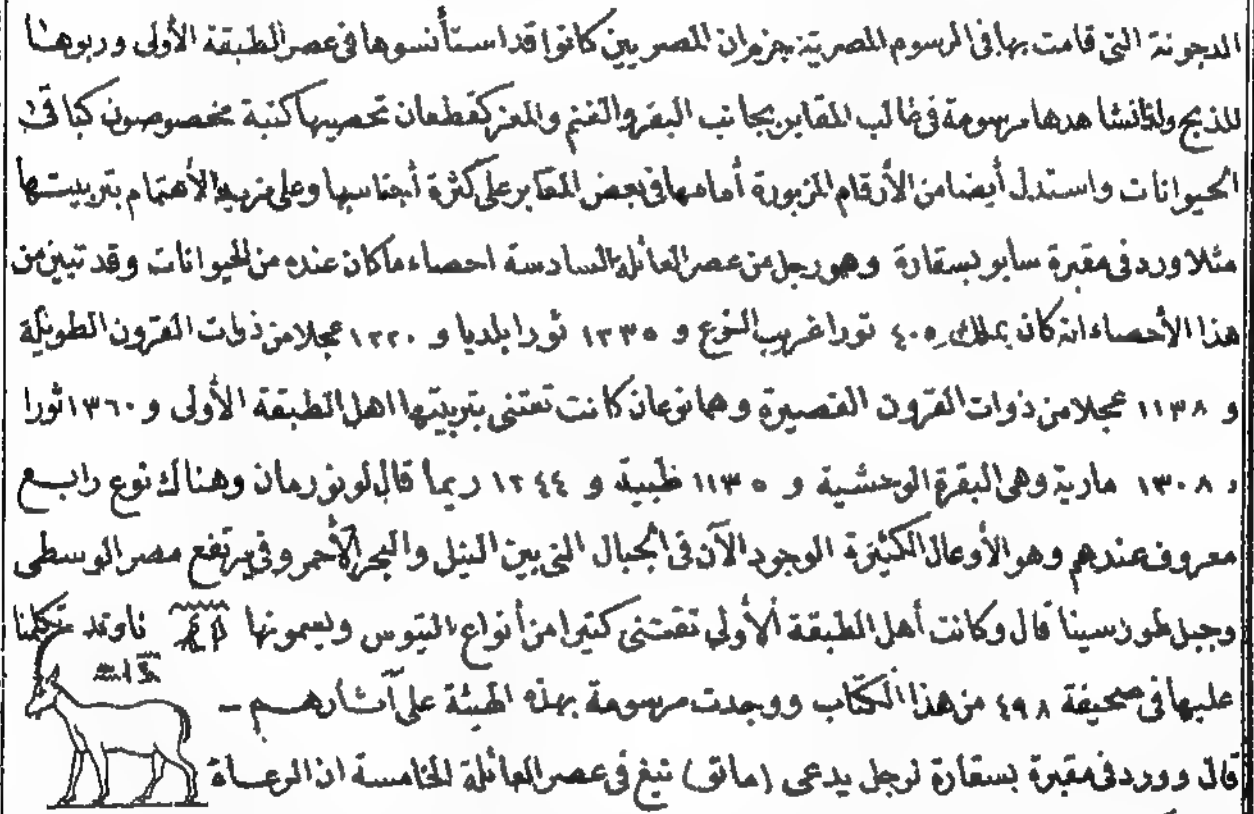 الدجونة التي قامت بها في الرسوم المصرية جزم ان المصريين كانوا قد استأنسوها في عصر الطبقة الأولى وربوها
للذبح ولذا نشاهدها مرسومة في غالب المقابر بجانب البقر والغنم والمعز كقطعان تحصيها كتبة مخصوصون كباقي
الحيوانات واستدل أيضا من الأرقام المزبورة أمامها في بعض المقابر على كثرة أجناسها وعلى مزيد الأهتمام بتربيتها
مثلا ورد في مقبرة سابو بسقارة وهو رجل من عصر العائلة السادسة احصاء ما كان عنده من الحيوانات وقد تبين من
هذا الأحصاء انه كان يملك ٤٠٥ ثورا غريب النوع و ١٢٣٥ ثورا بلديا و ١٢٢٠ عجلا من ذوات القرون الطويلة
و ١١٣٨ عجلا من ذوات القرون القصيرة وهما نوعان كانت تعتني بتربيتها اهل الطبقة الأولى و ١٣٦٠ ثورا
و ١٣٠٨ مارية وهي البقرة الوحشية و ١١٣٥ ظبية و ١٢٤٤ ريما قال لونورمان وهناك نوع رابع
معروف عندهم وهو الأوعال الكثيرة الوجود الآن في الجبال التي بين النيل والبحر الأحمر وفي مرتفع مصر الوسطى
وجبل طور سينا قال وكانت أهل الطبقة الأولى تقتني كثيرا من أنواع التيوس ويسمونها ناو قد تكلمنا
عليها في صحيفة ٤٩٨ من هذا الكتاب ووجدت مرسومة بهذه الهيئة على آثارهم -
قال وورد في مقبرة بسقارة لرجل يدعى (مانق) نبغ في عصر العائلة الخامسة ان الرعاة